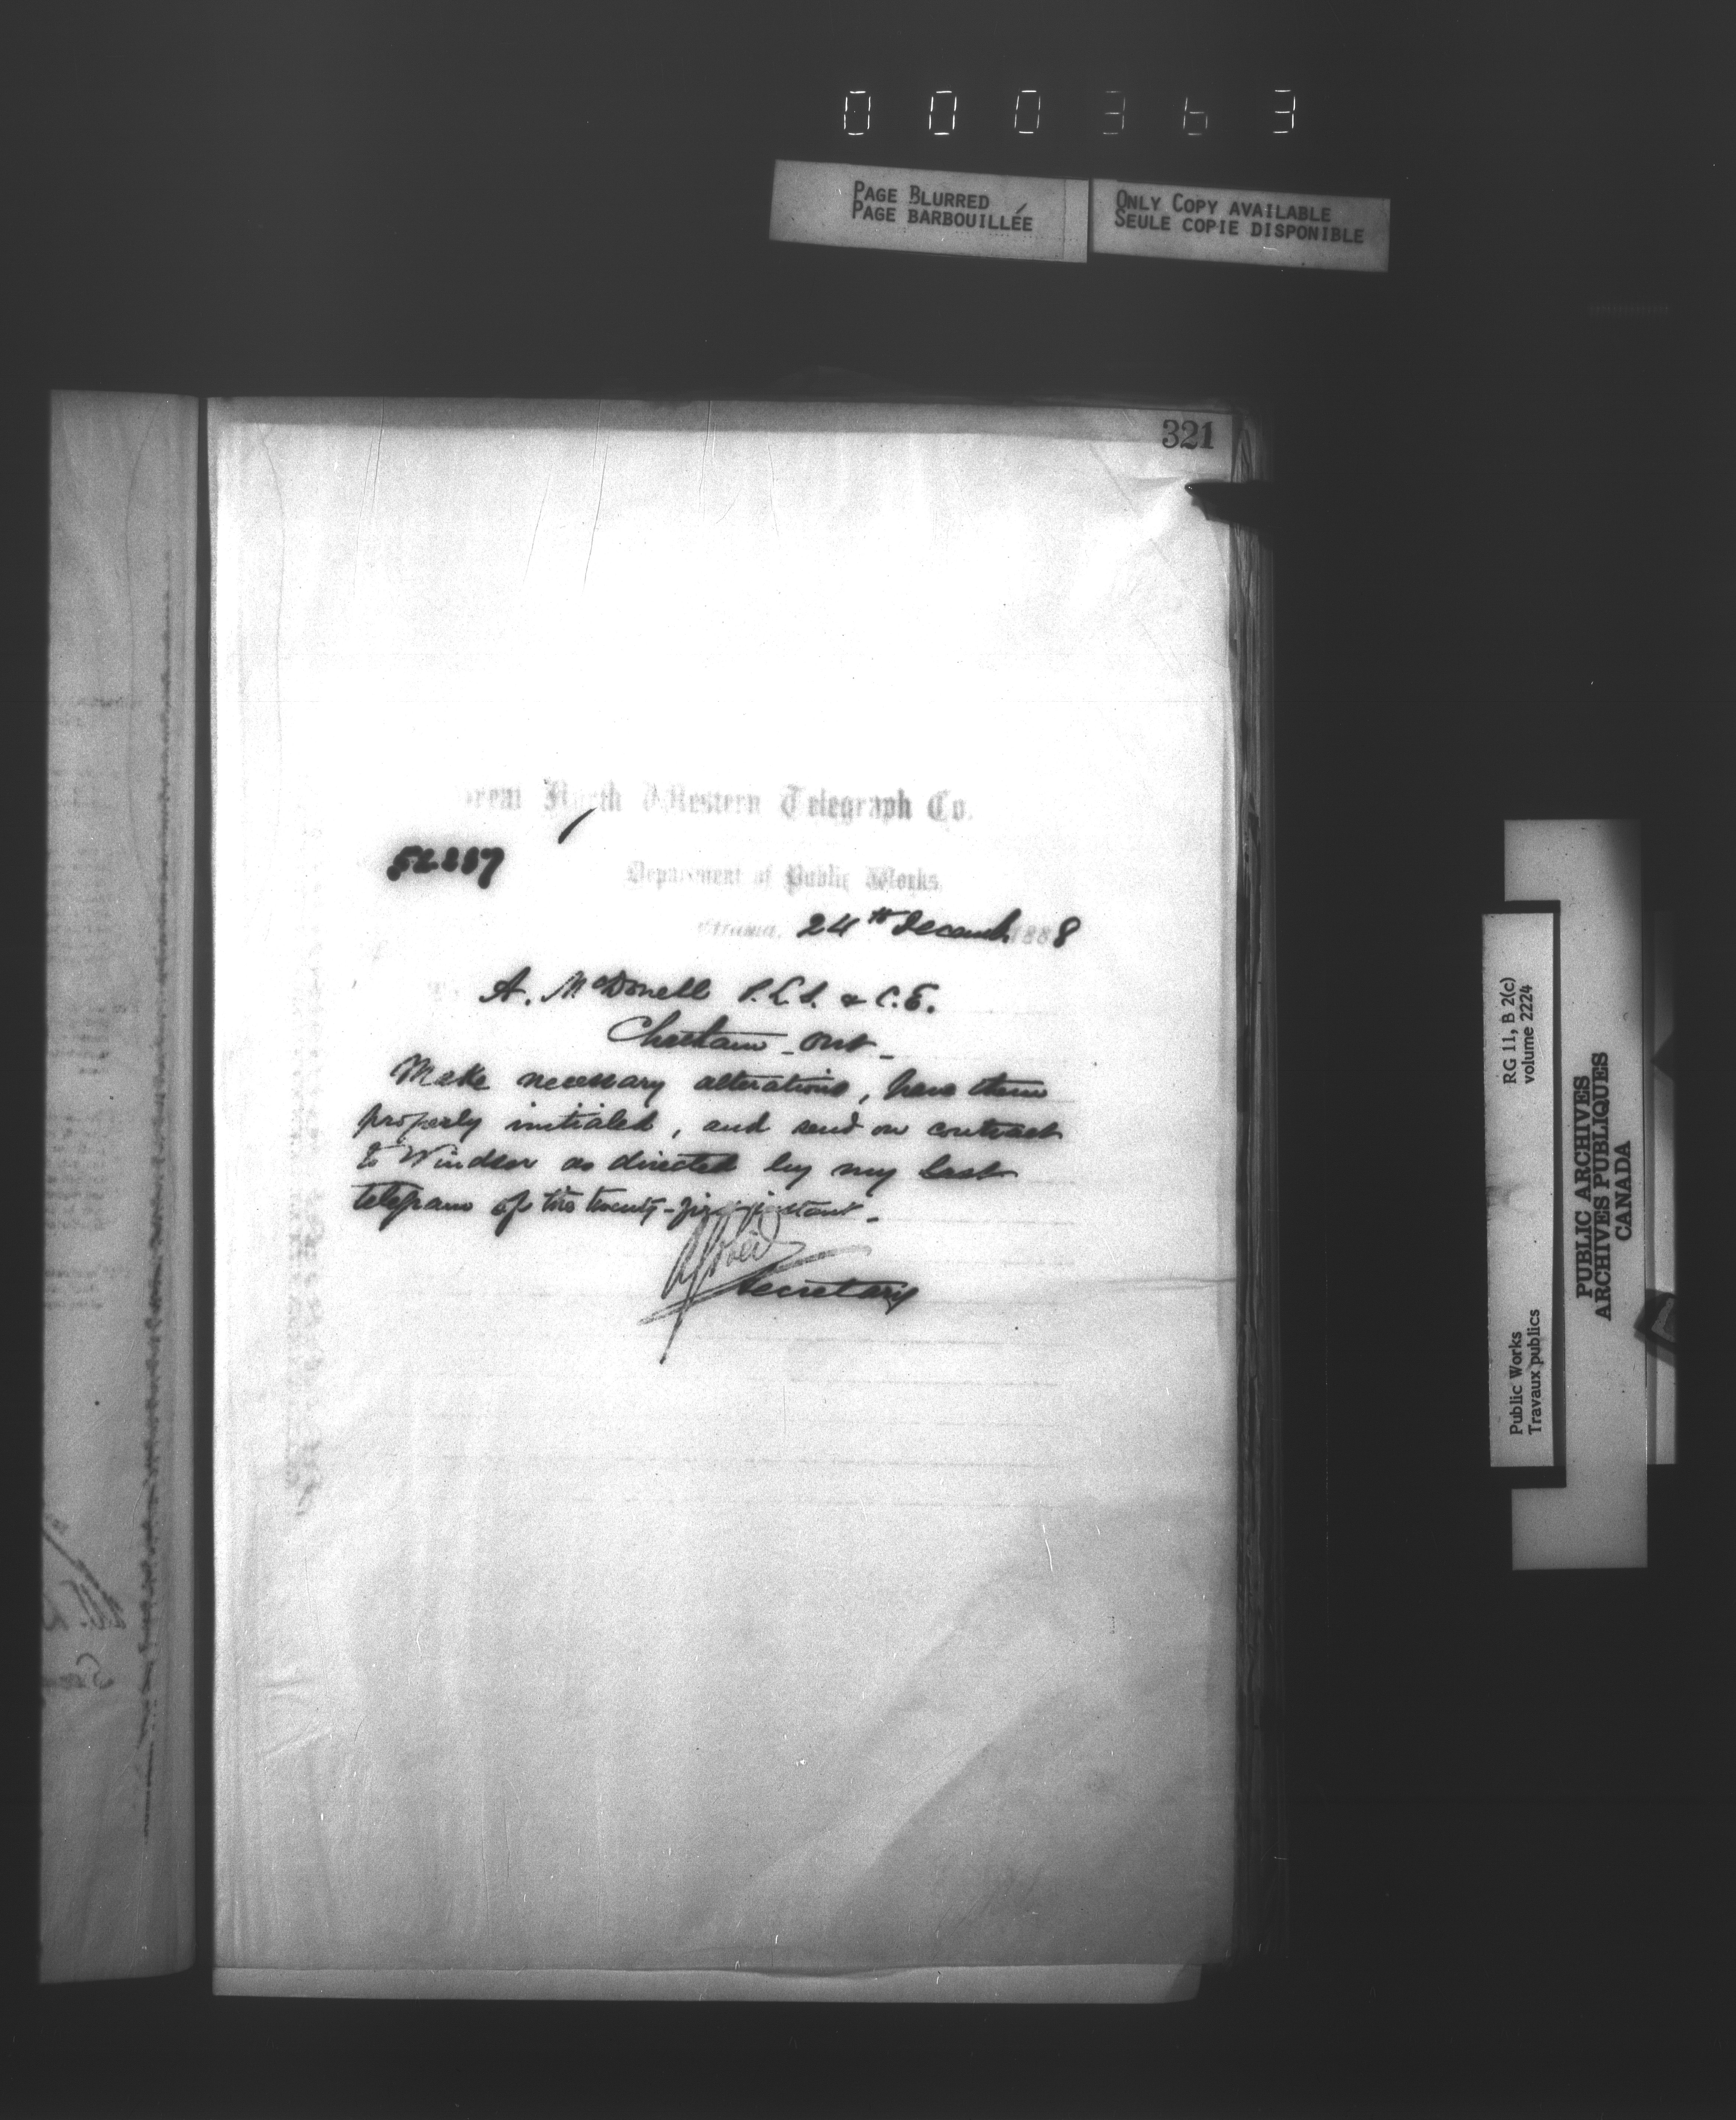 000363
PAGE BLURRED
PAGE BARBOUILLÉE
ONLY COPY AVAILABLE
SEULE COPIE DISPONIBLE
321
Great North Western Telegraph Co.
Department of Public Works,
Ottawa, 24th Decemb 1888
A. McDonell P.L.S. & C.E.
Chatham - Ont -
Make necessary alterations, have them
properly initialed, and send on contract
to Windsor as directed by my last
telegram of the twenty-first instant.
Secretary
RG 11, B 2(c)
volume 2224
Public Works
Travaux publics
PUBLIC ARCHIVES
ARCHIVES PUBLIQUES
CANADA